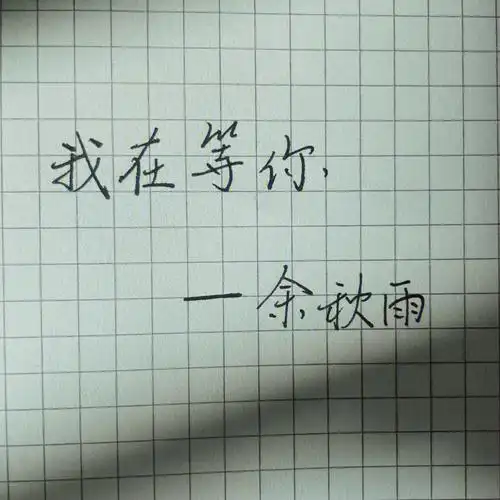 我在等你.
—余秋雨